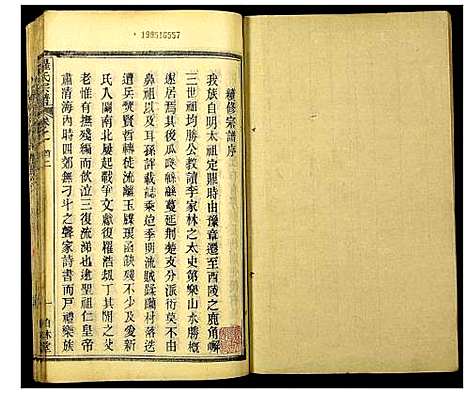 198516557
續修宗譜序
我族自明太祖定鼎時由豫章遷至西陵之鹿角㠏
三世祖均勝公教讀李家林太史第樂山水勝概
遂居焉由是綿綿蔓延荆楚支分派衍莫不由
鼻祖以及耳孫詳載誌乘迨季明流賊蹂躪村落迭
遭兵燹賢哲轉徙流離玉牒琅函缺殘不少及愛新
氏入關南北屢起戰爭文獻
老惟有撫殘編而飲泣三復流涕也逮聖祖仁皇帝
肅清海內時四郊無刁斗之聲家詩書而戶禮樂族
氏宗譜 卷之首
一
柏林堂